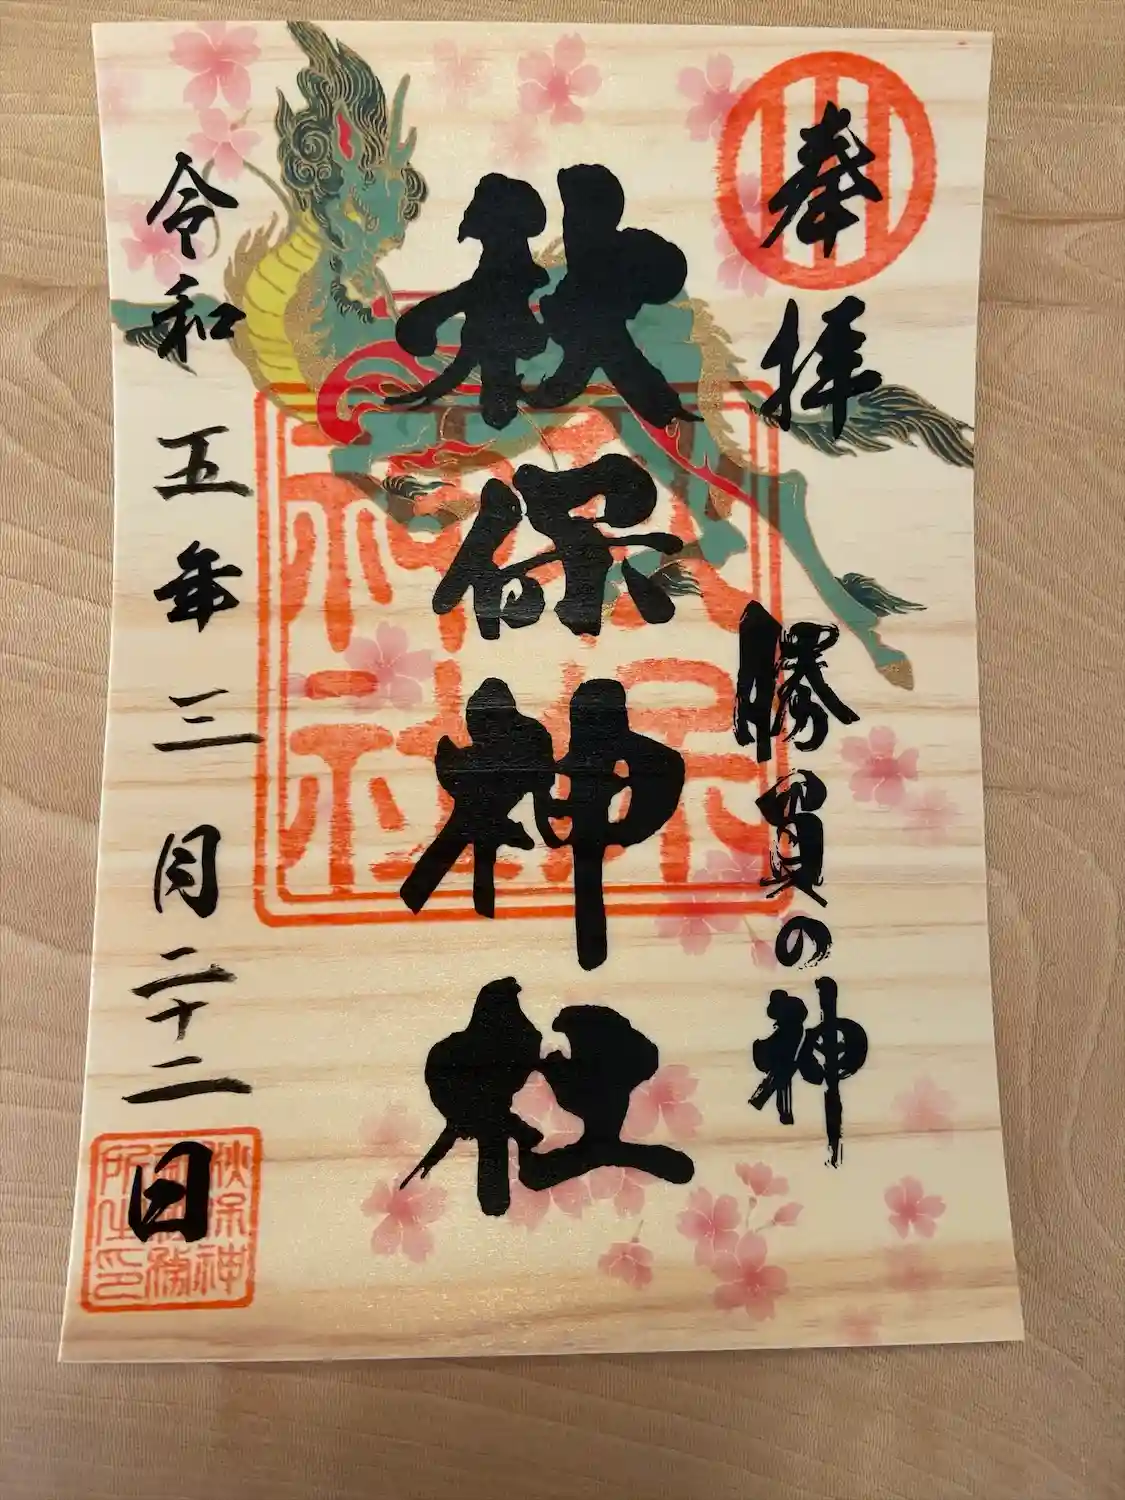 奉拝
勝負の神
秋保神社
令和五年三月二十二日
秋保神社
秋保神社社務所之印